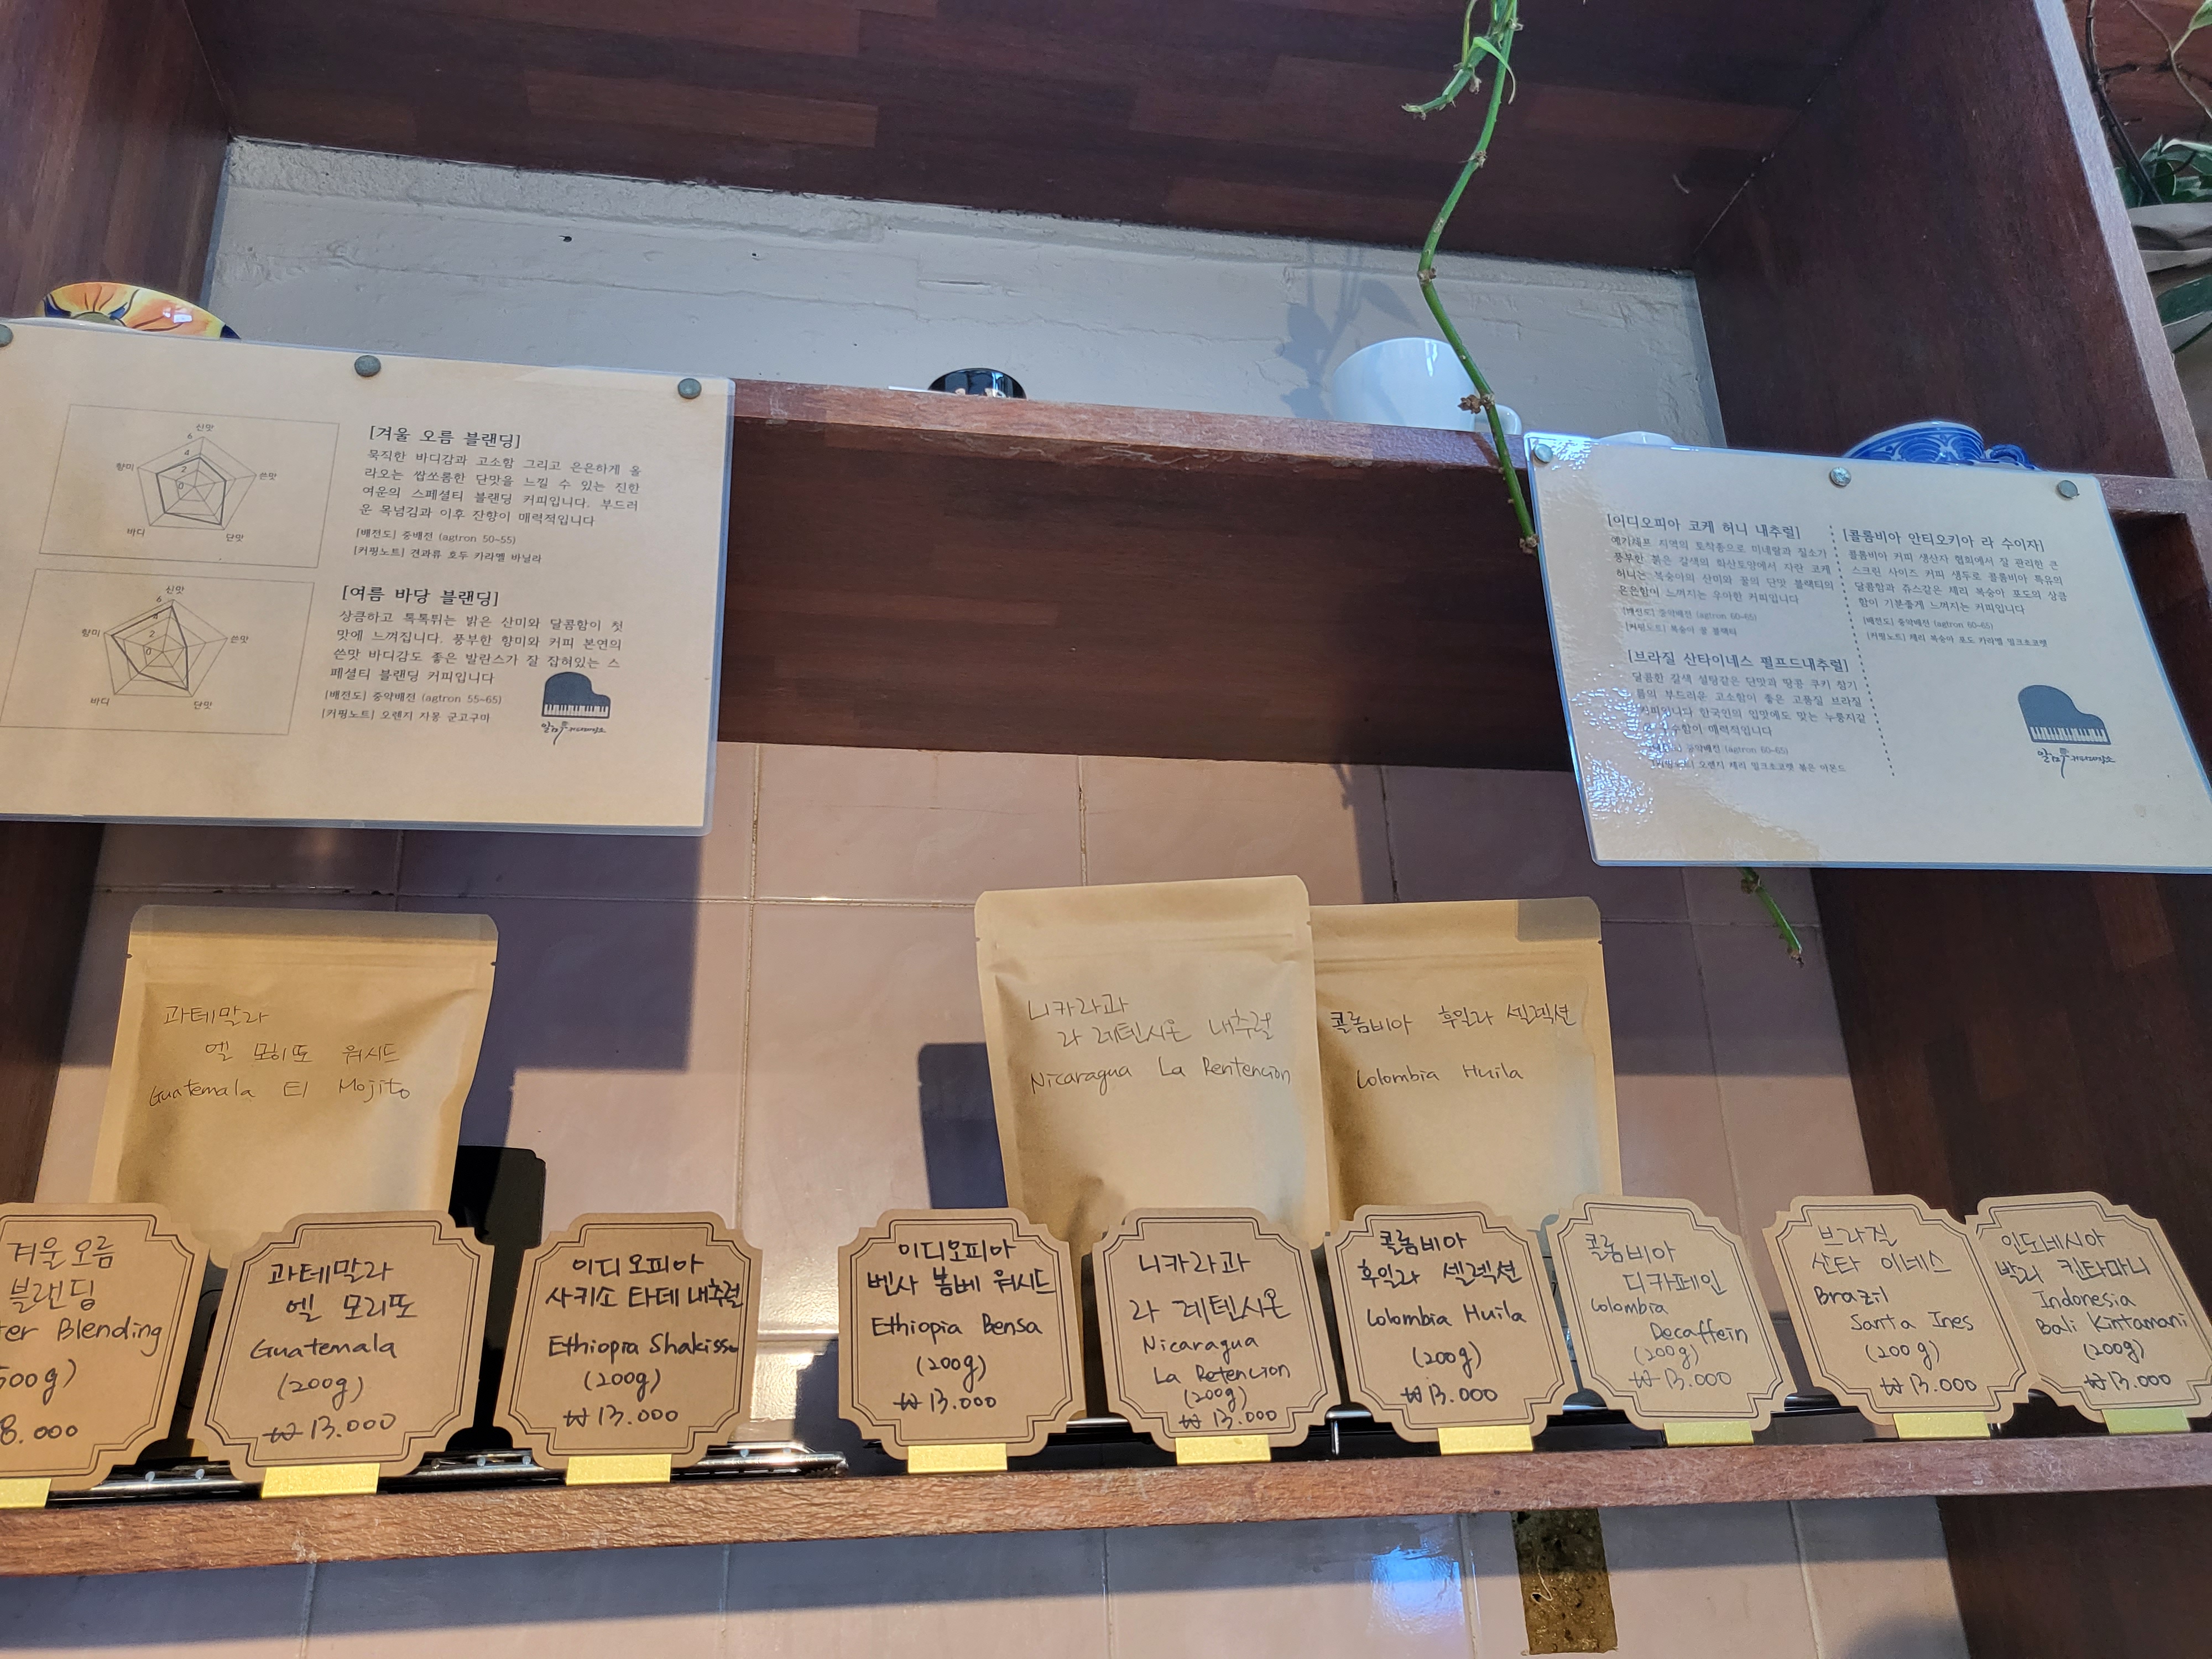 신맛
6
4
2
0
향미
쓴맛
바디
단맛
[겨울 오름 블랜딩]
묵직한 바디감과 고소함 그리고 은은하게 올
라오는 쌉쏘롬한 단맛을 느낄 수 있는 진한
여운의 스페셜티 블랜딩 커피입니다. 부드러
운 목넘김과 이후 잔향이 매력적입니다
[배전도] 중배전 (agtron 50~55)
[커핑노트] 견과류 호두 카라멜 바닐라
신맛
6
4
2
0
향미
쓴맛
바디
단맛
[여름 바당 블랜딩]
상큼하고 톡톡튀는 밝은 산미와 달콤함이 첫
맛에 느껴집니다. 풍부한 향미와 커피 본연의
쓴맛 바디감도 좋은 발란스가 잘 잡혀있는 스
페셜티 블랜딩 커피입니다
[배전도] 중약배전 (agtron 55~65)
[커핑노트] 오렌지 자몽 군고구마
[이디오피아 코케 허니 내추럴]
예가체프 지역의 토착종으로 미네랄과 질소가
풍부한 붉은 갈색의 화산토양에서 자란 코케
허니는 복숭아의 산미와 꿀의 단맛 블랙티의
은은함이 느껴지는 우아한 커피입니다
[배전도] 중약배전 (agtron 60~65)
[커핑노트] 복숭아 꿀 블랙티
[브라질 산타이네스 펄프드내추럴]
달콤한 갈색 설탕같은 단맛과 땅콩 쿠키 참기
름의 부드러운 고소함이 좋은 고품질 브라질
커피입니다 한국인의 입맛에도 맞는 누룽지같
수함이 매력적입니다
중약배전 (agtron 60~65)
[커핑노트] 오렌지 체리 밀크초코렛 볶은 아몬드
[콜롬비아 안티오키아 라 수이자]
콜롬비아 커피 생산자 협회에서 잘 관리한 큰
스크린 사이즈 커피 생두로 콜롬비아 특유의
달콤함과 쥬스같은 체리 복숭아 포도의 상큼
함이 기분좋게 느껴지는 커피입니다
[배전도] 중약배전 (agtron 60~65)
[커핑노트] 체리 복숭아 포도 카라멜 밀크초코렛
과테말라
엘 모히또 워시드
Guatemala El Mojito
니카라과
라 레텐시온 내추럴
Nicaragua La Rentencion
콜롬비아 후일라 셀렉션
Colombia Huila
겨울오름
블랜딩
ter Blending
500g)
8.000
과테말라
엘 모리또
Guatemala
(200g)
₩13.000
이디오피아
사키소 타데 내추럴
Ethiopia Shakisso
(200g)
₩13.000
이디오피아
벤사 봄베 워시드
Ethiopia Bensa
(200g)
₩13.000
니카라과
라 레텐시온
Nicaragua
La Retencion
(200g)
₩13.000
콜롬비아
후일라 셀렉션
Colombia Huila
(200g)
₩13.000
콜롬비아
디카페인
Colombia
Decaffein
(200g)
₩13.000
브라질
산타 이네스
Brazil
Santa Ines
(200g)
₩13.000
인도네시아
발리 킨타마니
Indonesia
Bali Kintamani
(200g)
₩13.000